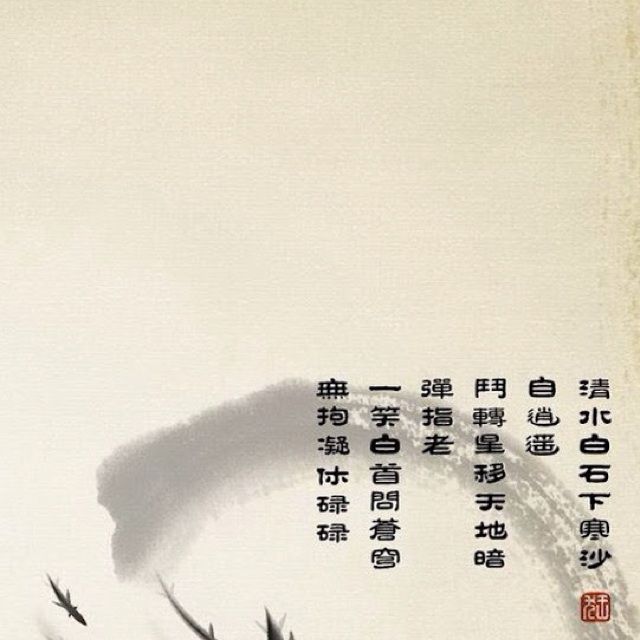 清水白石下寒沙
自逍遥
鬥轉星移天地暗
彈指老
一笑白首問蒼穹
無拘凝休碌碌